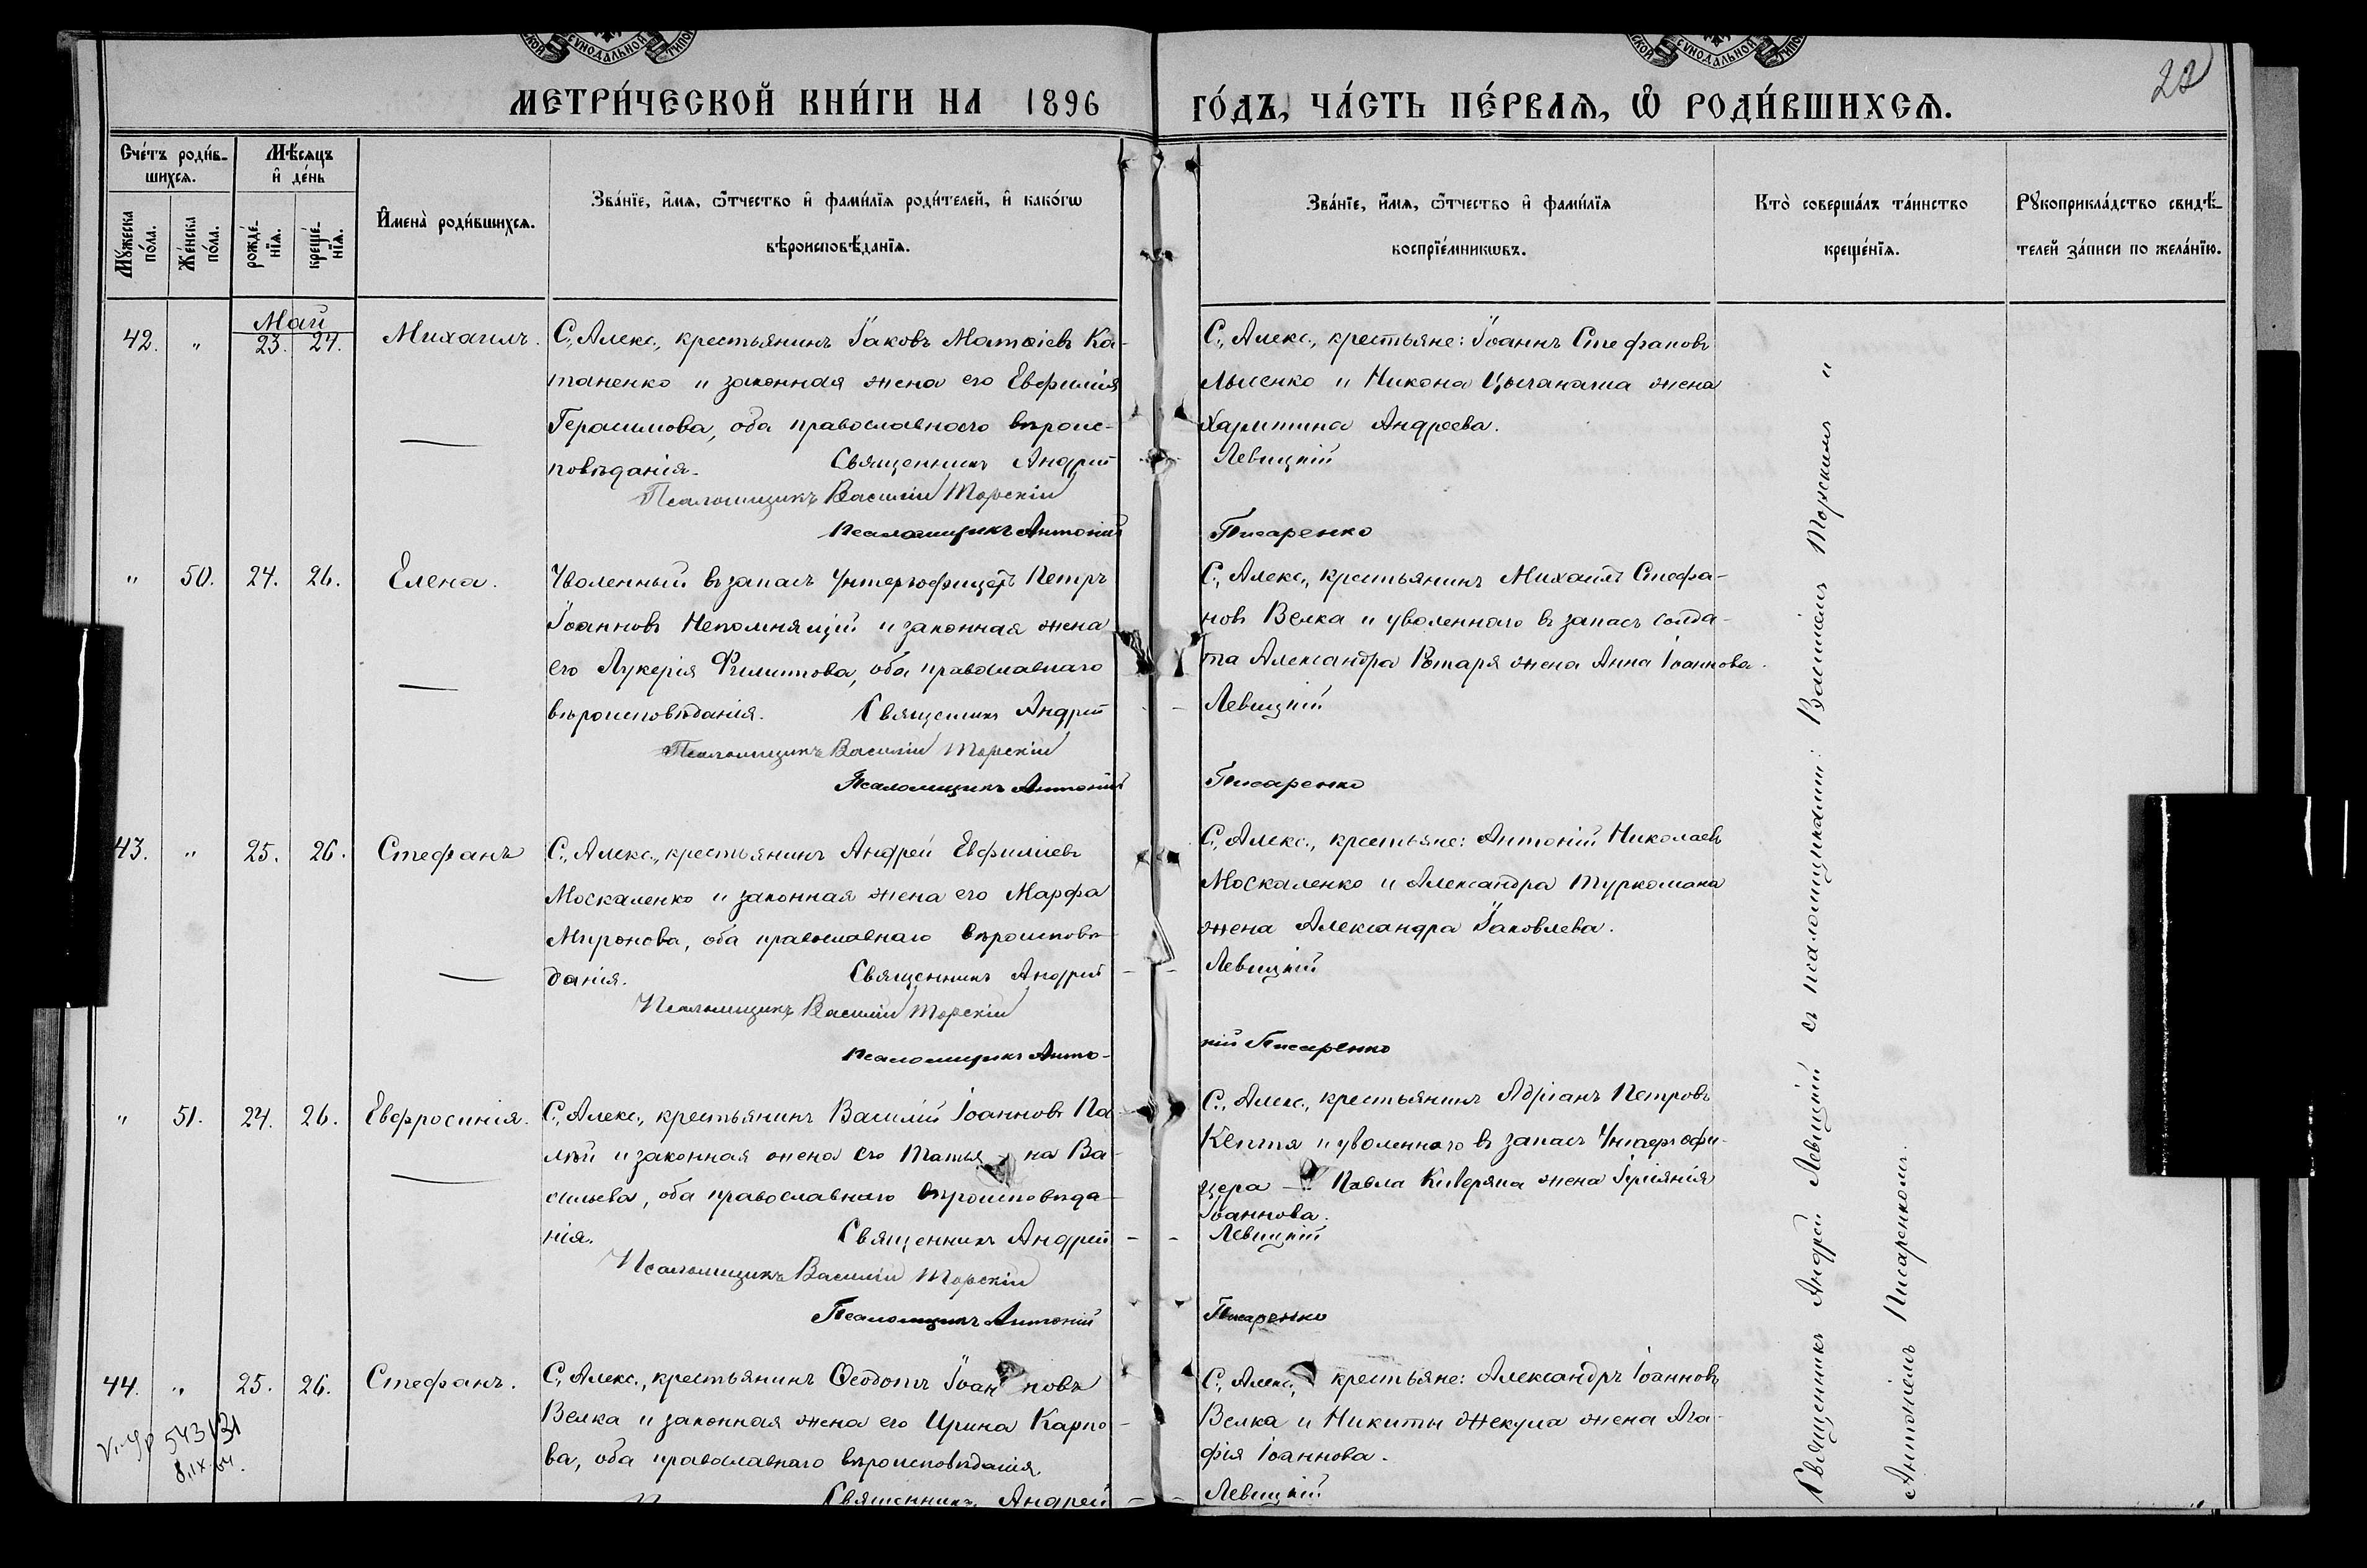 СѴНОДАЛЬНОЙ
СѴНОДАЛЬНОЙ
22
МЕТРИ́ЧЕСКОЙ КНИ́ГИ НА 1896
ГО́ДЪ, ЧА́СТЬ ПЕ́РВАѦ, Ѡ РОДИ́ВШИХСѦ.
Сче́тъ роди́в-
шихсѧ.
Мѣ́сѧцъ
и҆ де́нь
Мꙋ́жеска
по́ла.
Же́нска
по́ла.
рожде́-
нїѧ.
креще́-
нїѧ.
И҆мена̀ роди́вшихсѧ.
Зва́нїе, и҆́мѧ, ѻ҆́тчество и҆ фами́лїѧ роди́телей, и҆ како́гѡ
вѣроисповѣ́данїѧ.
Зва́нїе, и҆́мѧ, ѻ҆́тчество и҆ фами́лїѧ
воспрїе́мникѡвъ.
Кто̀ соверша́лъ та́инство
креще́нїѧ.
Рꙋкоприкла́дство свидѣ́-
телей за́писи по жела́нїю.
Май
42. " 23. 24. Михаилъ.
С., Алекс., крестьянинъ Іаковъ Матѳіевъ Ка-
таненко и законная жена его Евфимія
Герасимова, оба православного вѣроис-
повѣданія. Священникъ Андрей
Псаломщикъ Василій Торскій
Псаломщикъ Антоній
С., Алекс., крестьяне: Іоаннъ Стефановъ
Лысенко и Никона Цыганаша жена
Харитина Андреева.
Левицкій
Писаренко
" 50. 24. 26. Елена.
Уволенный въ запасъ Унтеръофицеръ Петръ
Іоанновъ Непомнящій и законная жена
его Лукерія Филиппова, оба православнаго
вѣроисповѣданія. Священникъ Андрей
Псаломщикъ Василій Торскій
Псаломщикъ Антоній
С., Алекс., крестьянинъ Михаилъ Стефа-
новъ Велка и уволенного въ запасъ солда-
та Александра Ротаря жена Анна Іоаннова.
Левицкій
Писаренко
43. " 25. 26. Стефанъ
С., Алекс., крестьянинъ Андрей Евфиміевъ
Москаленко и законная жена его Марфа
Миронова, оба православнаго вѣроисповѣ-
данія. Священникъ Андрей
Псаломщикъ Василій Торскій
Псаломщикъ Анто-
С., Алекс., крестьяне: Антоній Николаевъ
Москаленко и Александра Туркомана
жена Александра Іаковлева.
Левицкій
ній Писаренко
" 51. 24. 26. Евфросинія.
С., Алекс., крестьянинъ Василій Іоанновъ Па-
лѣй и законная жена его Татья на Ва-
сильева, оба православнаго вѣроисповѣда-
нія. Священникъ Андрей
Псаломщикъ Василій Торскій
Псаломщикъ Антоній
С., Алекс., крестьянинъ Адріанъ Петровъ
Кептя и уволенного въ запасъ Унтеръофи-
цера Павла жена
Іоаннова.
Левицкій
Писаренко
44. " 25. 26. Стефанъ.
С., Алекс., крестьянинъ Ѳеодотъ Іоан новъ
Велка и законная жена его Ирина Карпо-
ва, оба православнаго вѣроисповѣданія.
Священникъ Андрей
543131
8.IX.64.
С., Алекс., крестьяне: Александръ Іоанновъ
Велка и Никиты Жекула жена Ага-
фія Іоаннова.
Левицкій
Священникъ Андрей Левицкій съ псаломщиками: Василіемъ Торскимъ и
Антоніемъ Писаренкомъ.